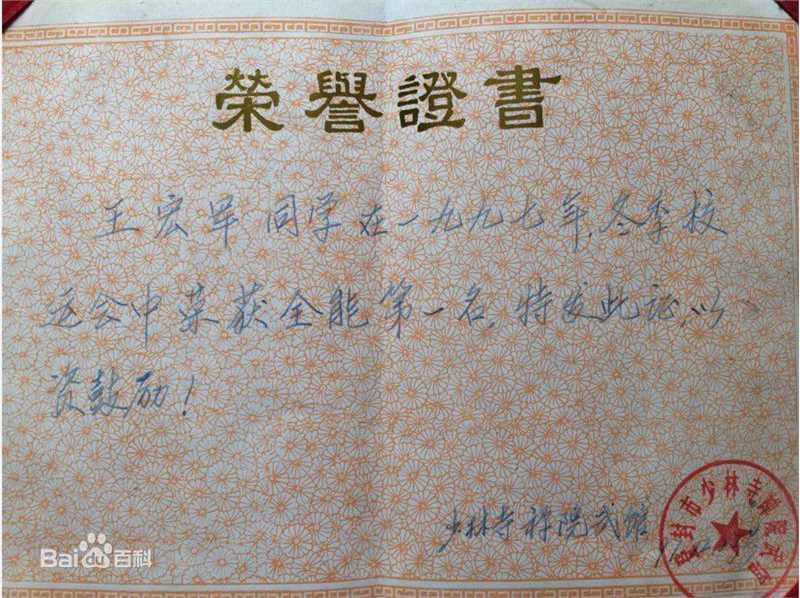 榮譽證書
王宏军 同学在一九九七年,冬季校
运会中荣获全能第一名,特发此证,以
资鼓励!
少林寺禅院武馆
登封市少林寺禅院武馆
Bai du 百科